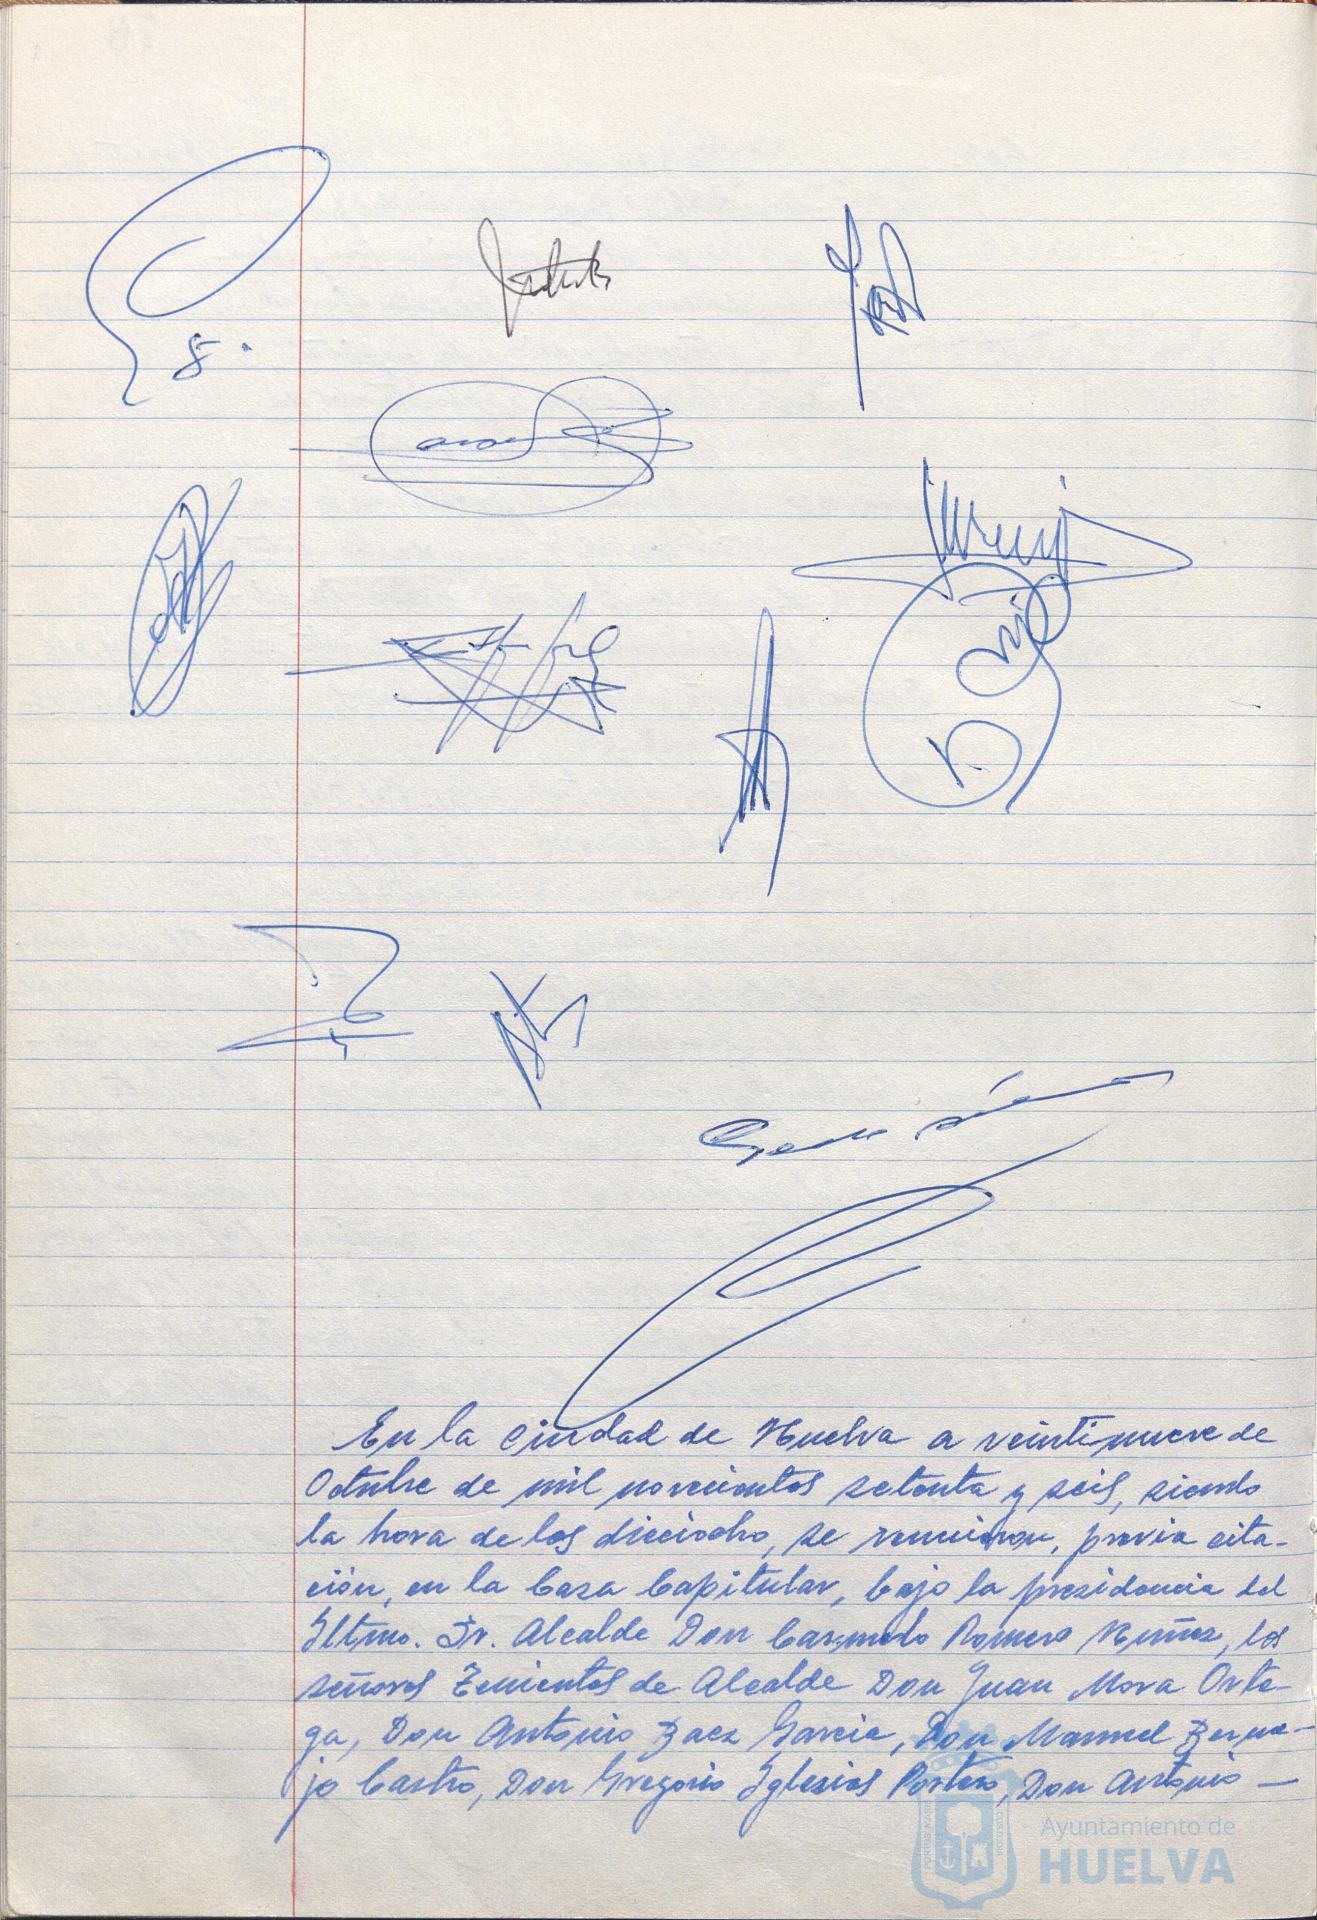 En la ciudad de Huelva a veintinueve de
Octubre de mil novecientos setenta y seis, siendo
la hora de las dieciocho, se reunieron, previa cita-
ción, en la Casa Capitular, bajo la presidencia del
Iltmo. Sr. Alcalde Don Carmelo Romero Núñez, los
señores Tenientes de Alcalde Don Juan Mora Orte-
ga, Don Antonio Baez Garcia, Don Manuel Berme-
jo Castro, Don Gregorio Iglesias Portero, Don Antonio —
Ayuntamiento de
HUELVA